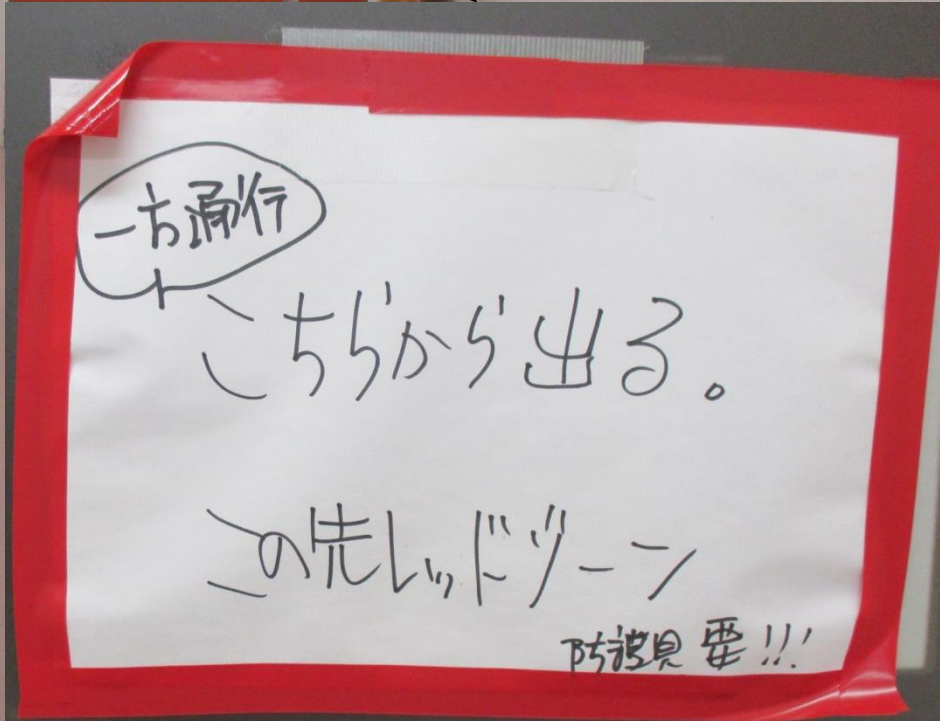 一方通行
こちらから出る。
この先レッドゾーン
防護具 要!!!